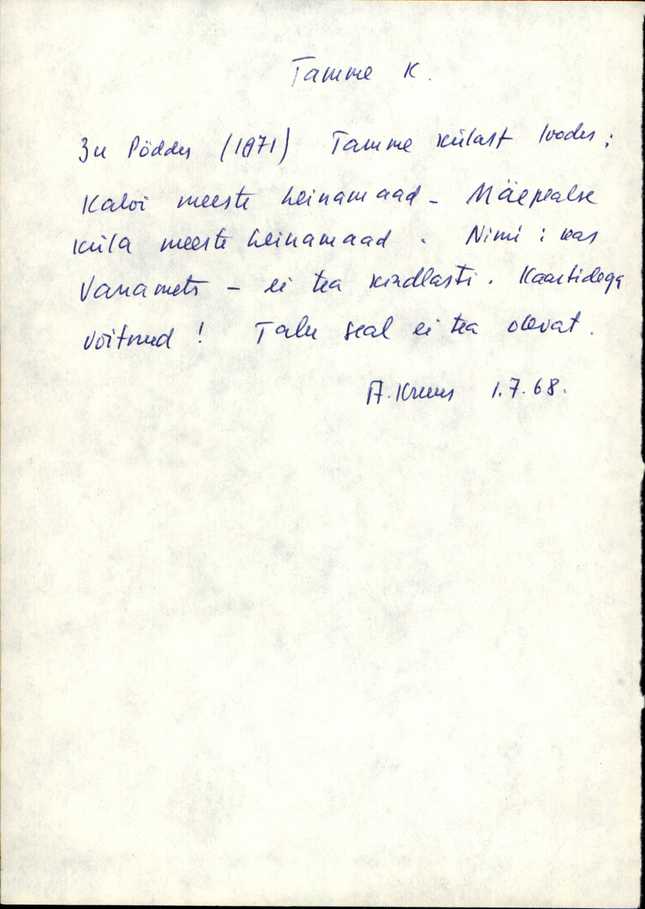 Tamme K.
Zu Pöddes (1871) Tamme külast loodes;
Kaloi meeste heinamaad - Mäepealse
küla meeste heinamaad. Nimi: kas
Vanamets - ei tea kindlasti. Kaartidega
võitnud! Talu seal ei tea olevat.
A. Kruus 1.7.68.